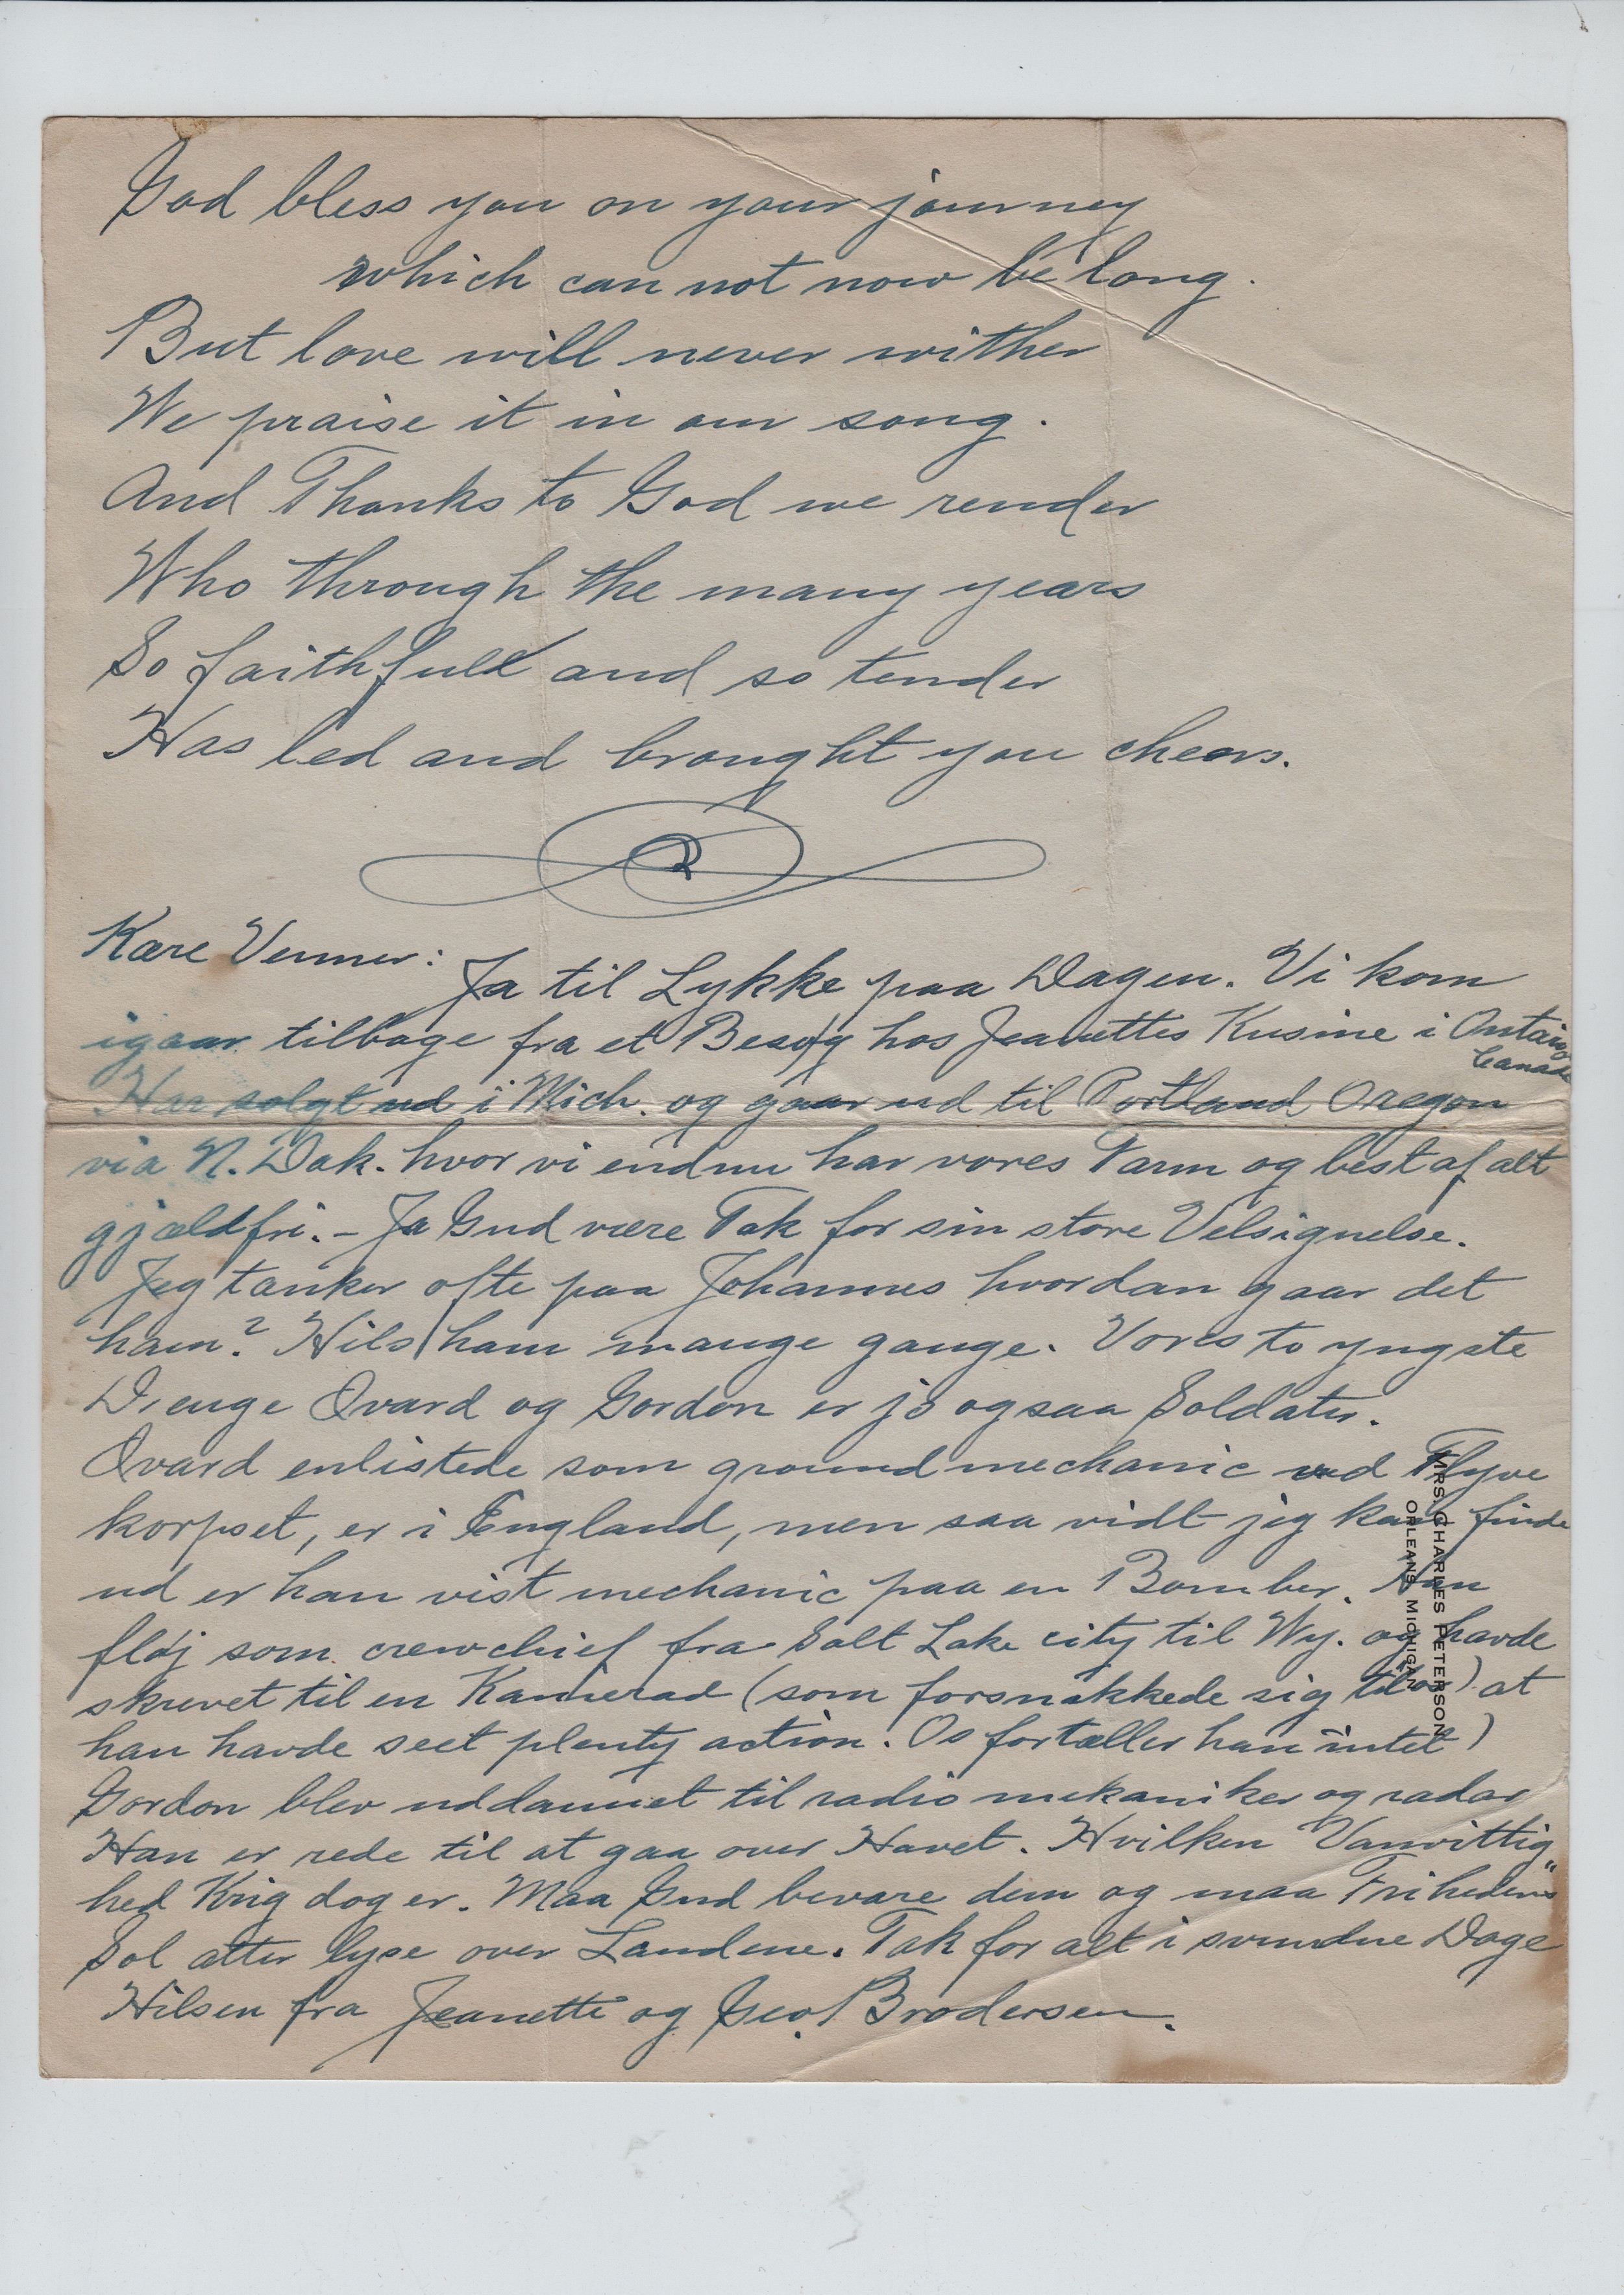 God bless you on your journey
which can not now be long.
But love will never wither
We praise it in our song.
And Thanks to God we render
Who through the many years
So faithfull and so tender
Has led and brought you cheers.
Kære Venner:
Ja til Lykke paa Dagen. Vi kom
igaar tilbage fra et Besøg hos Jeanettes Kusine i Ontario
Canada
Har solgt ud i Mich. og gaar ud til Portland Oregon
via N. Dak. hvor vi endnu har vores Farm og best af alt
gjældfri. - Ja Gud være Tak for sin store Velsignelse.
Jeg tænker ofte paa Johannes hvordan gaar det
ham? Hils ham mange gange. Vores to yngste
Drenge Ovard og Gordon er jo ogsaa Soldater.
Ovard enlistede som ground mechanic ved Flyve
korpset, er i England, men saa vidt jeg kan finde
ud er han vist mechanic paa en Bomber. Han
fløj som crewchief fra Salt Lake city til Wy. og havde
skrevet til en Kamerad (som forsnakkede sig til os) at
han havde seet plenty action. Os fortæller han intet)
Gordon blev uddannet til radio mekaniker og radar
Han er rede til at gaa over Havet. Hvilken Vanvittig"
hed Krig dog er. Maa Gud bevare dem og maa Frihedens
Sol atter lyse over Landene. Tak for alt i svundne Dage
Hilsen fra Jeanette og Geo. Brodersen.
MRS. CHARLES PETERSON
ORLEANS, MICHIGAN